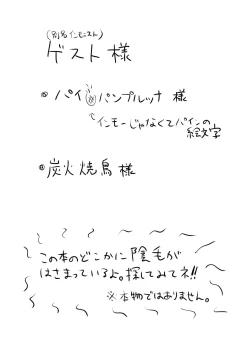 (別名インモニスト)
ゲスト様
◎ パイ パンプルッチ 様
インモーじゃなくてパインの
絵文字
◎炭火焼鳥様
この本のどこかに陰毛が
はさまっているよ。探してみてネ!!
※本物ではありません。